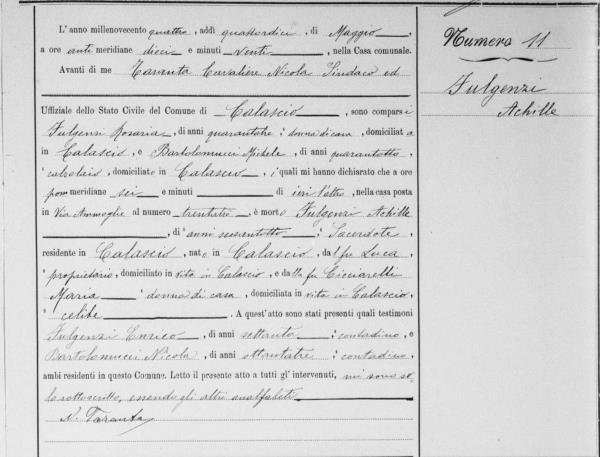 L'anno millenovecento quattro, addì quattordici, di Maggio,
a ore anti meridiane dieci e minuti venti, nella Casa comunale.
Avanti di me Taranta Cavaliere Nicola Sindaco ed
Uffiziale dello Stato Civile del Comune di Calascio, sono comparsi
Fulgenzi Rosaria, di anni quarantatre, donna di casa, domiciliata
in Calascio, e Bartolomucci Michele, di anni quarantotto,
calzolaio, domiciliato in Calascio, i quali mi hanno dichiarato che a ore
pom meridiane sei e minuti di ieri l'altro, nella casa posta
in Via al numero trentatre, è morto Fulgenzi Achille
, di anni sessantotto, Sacerdote,
residente in Calascio, nato in Calascio, dal fu Luca,
proprietario, domiciliato in vita in Calascio, e dalla fu Cicciarelli
Maria, donna di casa, domiciliata in vita in Calascio,
celibe. A quest'atto sono stati presenti quali testimoni
Fulgenzi Enrico, di anni settanta, contadino, e
Bartolomucci Nicola, di anni ottantatre, contadino,
ambi residenti in questo Comune. Letto il presente atto a tutti gl'intervenuti, mi sono so-
lo sottoscritto, essendo gli altri analfabeti
N. Taranta
Numero 11
Fulgenzi
Achille